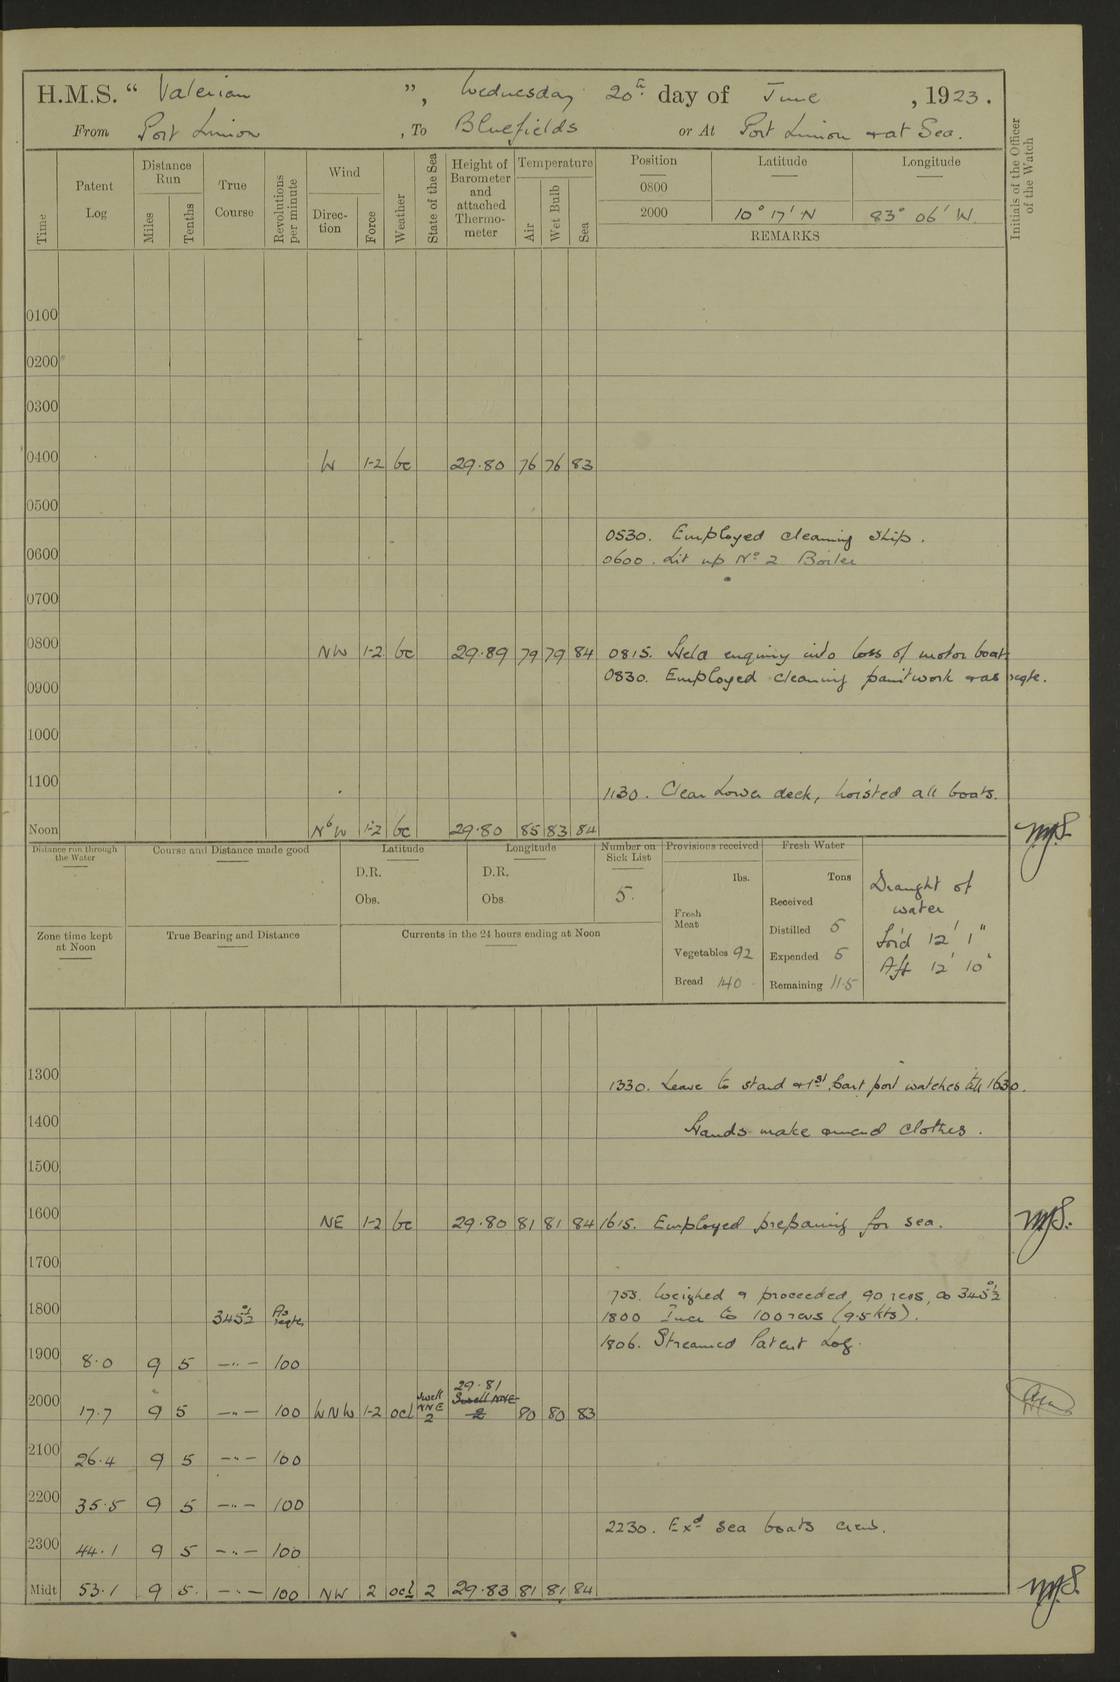 H.M.S. “ Valerian ”, Wednesday 20th day of June , 1923.
From Port Limon , To Bluefields or At Port Limon & at Sea.
Time
Patent Log
Distance Run
Miles
Tenths
True Course
Revolutions per minute
Wind
Direction
Force
Weather
State of the Sea
Height of Barometer and attached Thermometer
Temperature
Air
Wet Bulb
Sea
Position Latitude Longitude
0800
2000 10° 17' N 83° 06' W.
REMARKS
Initials of the Officer of the Watch
0100
0200
0300
0400 W 1-2 bc 29.80 76 76 83
0500
0530. Employed cleaning ship.
0600
0600. Lit up No 2 Boiler
0700
0800 NW 1-2 bc 29.89 79 79 84 0815. Held enquiry into loss of motor boat
0900 0830. Employed cleaning paintwork & as reqte.
1000
1100
1130. Clear Lower deck, hoisted all boats.
Noon NbW 1-2 bc 29.80 85 83 84
Distance run through the Water
Course and Distance made good
Latitude
D.R.
Obs.
Longitude
D.R.
Obs
Number on Sick List
5.
Provisions received
lbs.
Fresh Meat
Vegetables 92
Bread 140
Fresh Water
Tons
Received
Distilled 5
Expended 5
Remaining 115
Draught of water
For'd 12' 1"
Aft 12' 10"
Zone time kept at Noon
True Bearing and Distance
Currents in the 24 hours ending at Noon
1300
1330. Leave to stand & 1st part port watches till 1630.
1400
Hands make & mend clothes.
1500
1600 NE 1-2 bc 29.80 81 81 84 1615. Employed preparing for sea.
1700
1755. Weighed & proceeded, 90 revs, Co 345½°
1800 345½° As reqte. 1800 Incr to 100 revs (9.5 kts).
1806. Streamed Patent Log.
1900 8.0 9 5 —"— 100
2000 17.7 9 5 —"— 100 WNW 1-2 ocl Swell NNE 2 29.81 Swell NNE 2 80 80 83
2100 26.4 9 5 —"— 100
2200 35.5 9 5 —"— 100
2230. Exd sea boats crew.
2300 44.1 9 5 —"— 100
Midt 53.1 9 5. —"— 100 NW 2 ocl 2 29.83 81 81 84